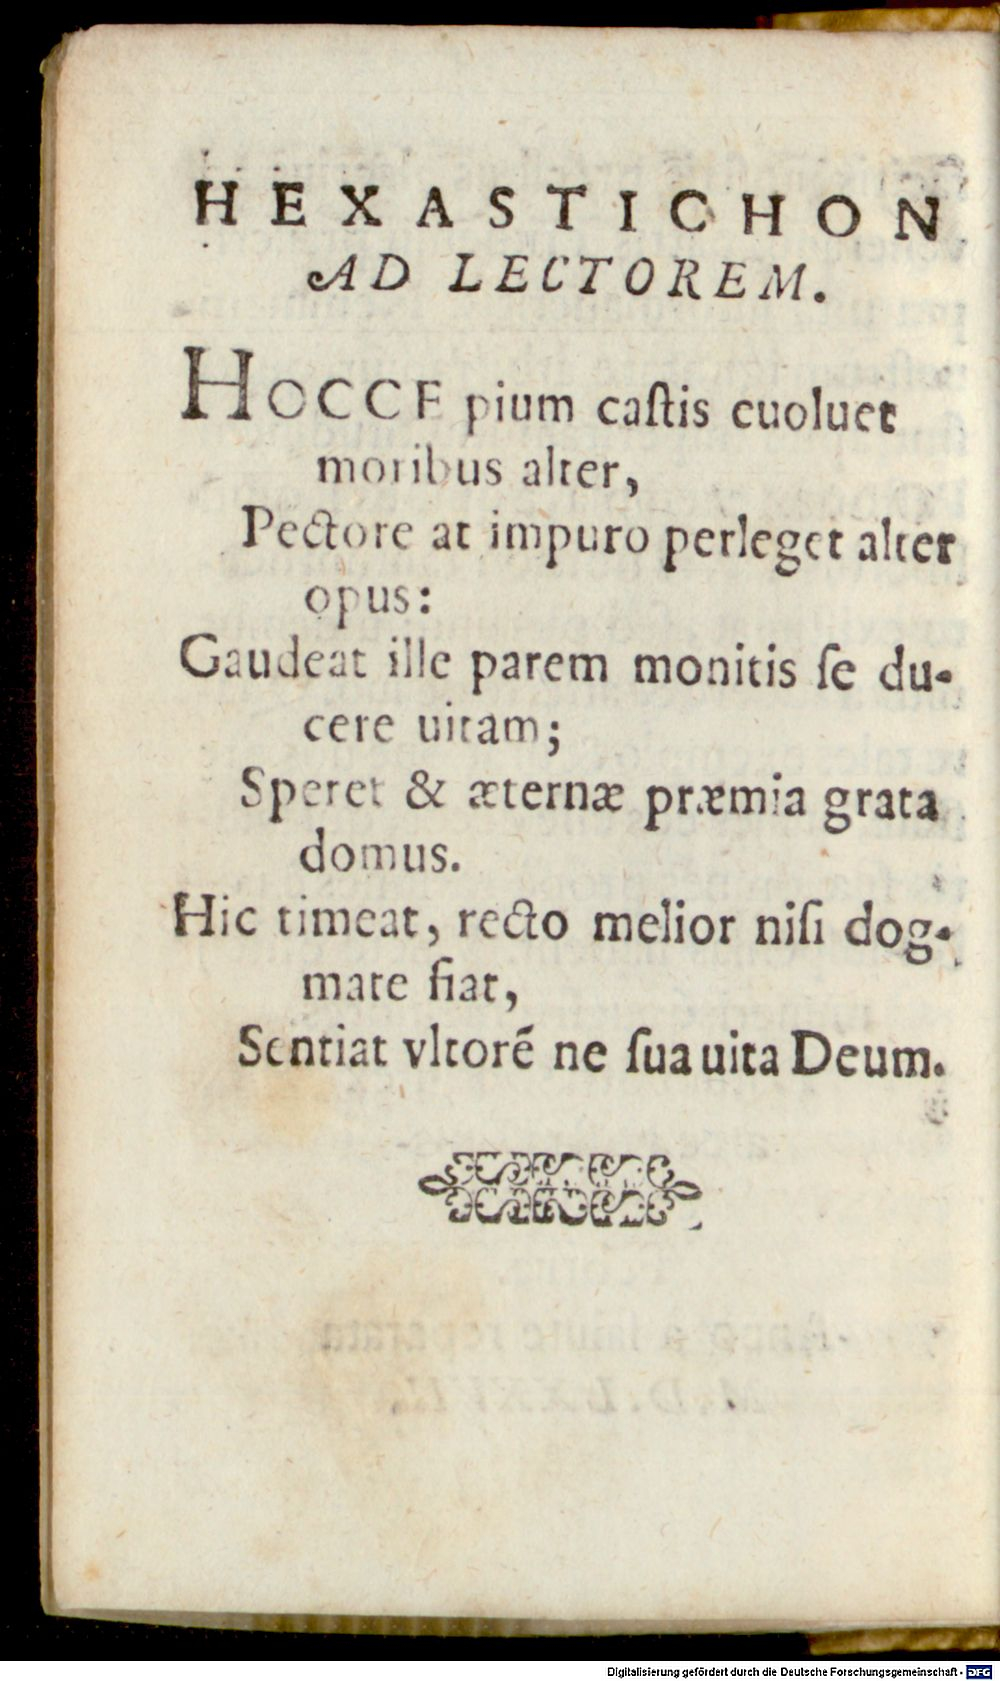 HEXASTICHON
AD LECTOREM.
HOCCE pium caſtis euoluet
moribus alter,
Pectore at impuro perleget alter
opus:
Gaudeat ille parem monitis ſe du-
cere uitam;
Speret & æternæ præmia grata
domus.
Hic timeat, recto melior niſi dog-
mate fiat,
Sentiat vltorē ne ſua uita Deum.
Digitalisierung gefördert durch die Deutsche Forschungsgemeinschaft - DFG